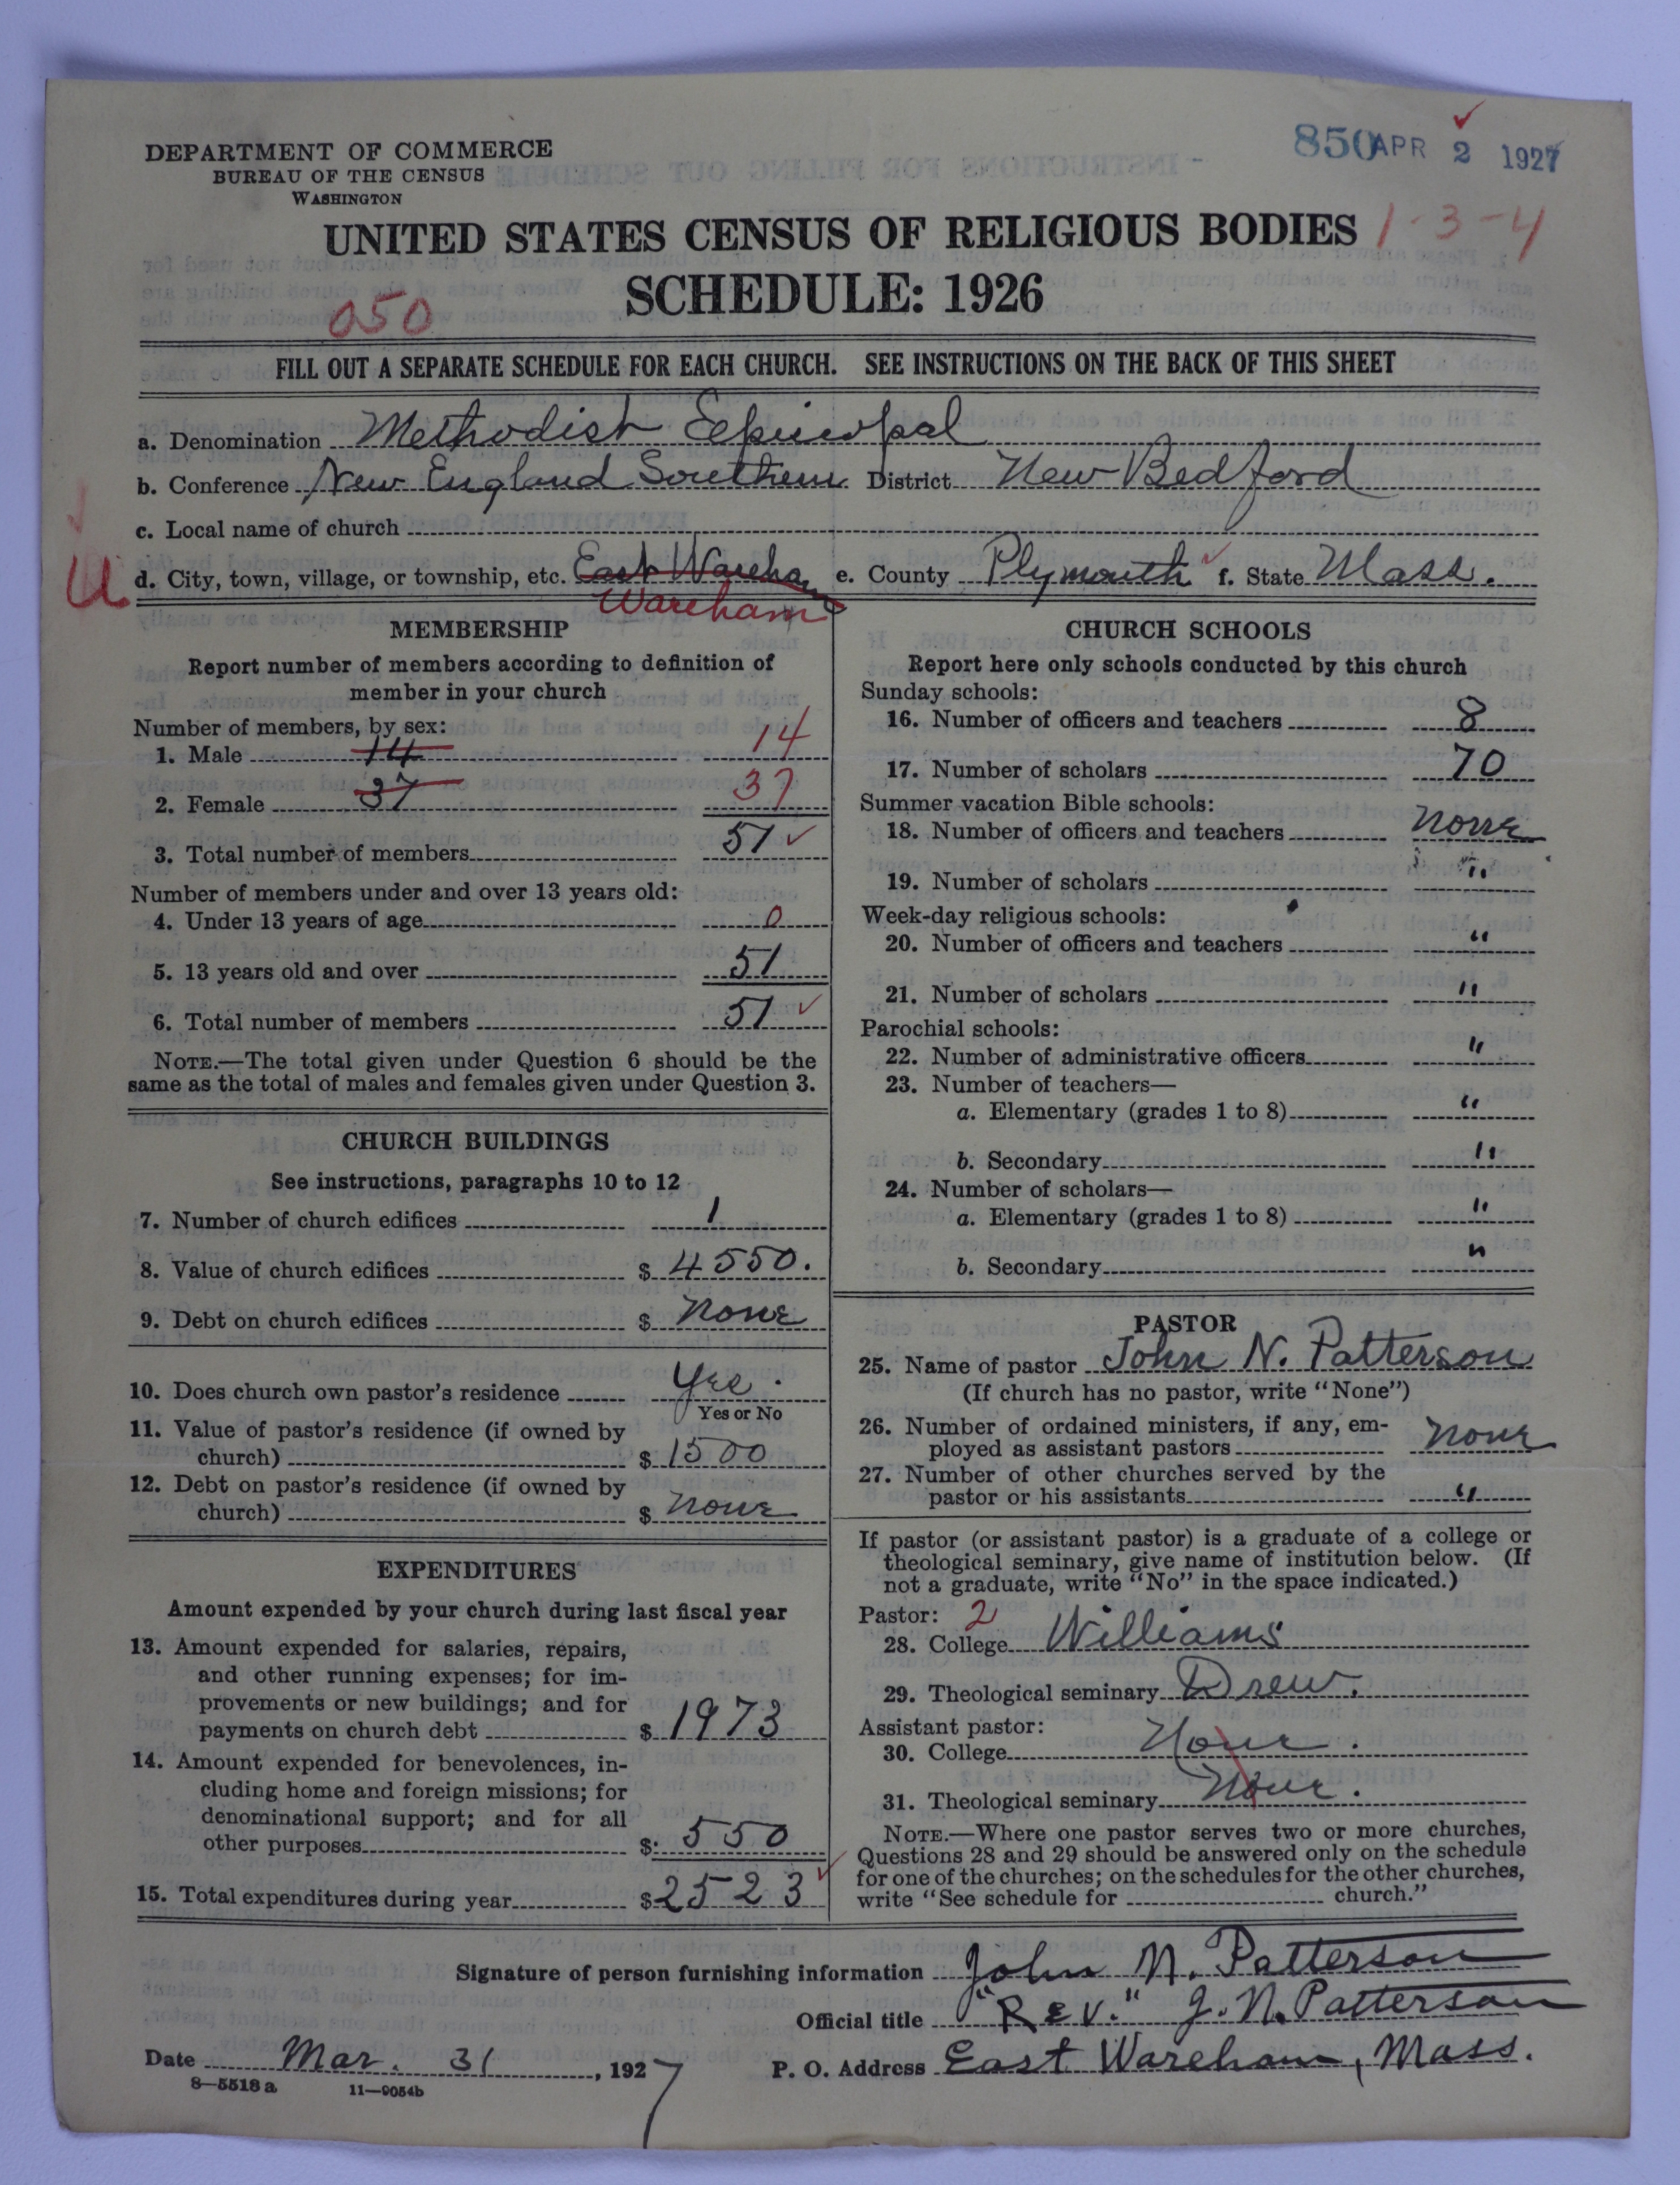 DEPARTMENT OF COMMERCE
BUREAU OF THE CENSUS
WASHINGTON
850 APR 2 1927
UNITED STATES CENSUS OF RELIGIOUS BODIES 1-3-4
SCHEDULE: 1926
050
FILL OUT A SEPARATE SCHEDULE FOR EACH CHURCH. SEE INSTRUCTIONS ON THE BACK OF THIS SHEET
a. Denomination Methodist Episcopal
b. Conference New England Southern District New Bedford
c. Local name of church
d. City, town, village, or township, etc. East Wareham e. County Plymouth f. State Mass.
Wareham
MEMBERSHIP
Report number of members according to definition of
member in your church
Number of members, by sex:
1. Male 14 14
2. Female 37 37
3. Total number of members 51
Number of members under and over 13 years old:
4. Under 13 years of age 0
5. 13 years old and over 51
6. Total number of members 51
NOTE.—The total given under Question 6 should be the
same as the total of males and females given under Question 3.
CHURCH BUILDINGS
See instructions, paragraphs 10 to 12
7. Number of church edifices 1
8. Value of church edifices $ 4550.
9. Debt on church edifices $ None
10. Does church own pastor's residence Yes.
Yes or No
11. Value of pastor's residence (if owned by
church) $ 1500
12. Debt on pastor's residence (if owned by
church) $ None
EXPENDITURES
Amount expended by your church during last fiscal year
13. Amount expended for salaries, repairs,
and other running expenses; for im-
provements or new buildings; and for
payments on church debt $ 1973
14. Amount expended for benevolences, in-
cluding home and foreign missions; for
denominational support; and for all
other purposes $ 550
15. Total expenditures during year $ 2523
CHURCH SCHOOLS
Report here only schools conducted by this church
Sunday schools:
16. Number of officers and teachers 8
17. Number of scholars 70
Summer vacation Bible schools:
18. Number of officers and teachers None
19. Number of scholars "
Week-day religious schools:
20. Number of officers and teachers "
21. Number of scholars "
Parochial schools:
22. Number of administrative officers "
23. Number of teachers—
a. Elementary (grades 1 to 8) "
b. Secondary "
24. Number of scholars—
a. Elementary (grades 1 to 8) "
b. Secondary "
PASTOR
25. Name of pastor John N. Patterson
(If church has no pastor, write "None")
26. Number of ordained ministers, if any, em-
ployed as assistant pastors None
27. Number of other churches served by the
pastor or his assistants "
If pastor (or assistant pastor) is a graduate of a college or
theological seminary, give name of institution below. (If
not a graduate, write "No" in the space indicated.)
Pastor: 2
28. College Williams
29. Theological seminary Drew.
Assistant pastor:
30. College None.
31. Theological seminary None.
NOTE.—Where one pastor serves two or more churches,
Questions 28 and 29 should be answered only on the schedule
for one of the churches; on the schedules for the other churches,
write "See schedule for church."
Signature of person furnishing information John N. Patterson
Official title "Rev." J. N. Patterson
Date Mar. 31, 1927 P. O. Address East Wareham, Mass.
8—5518 a 11—9054b